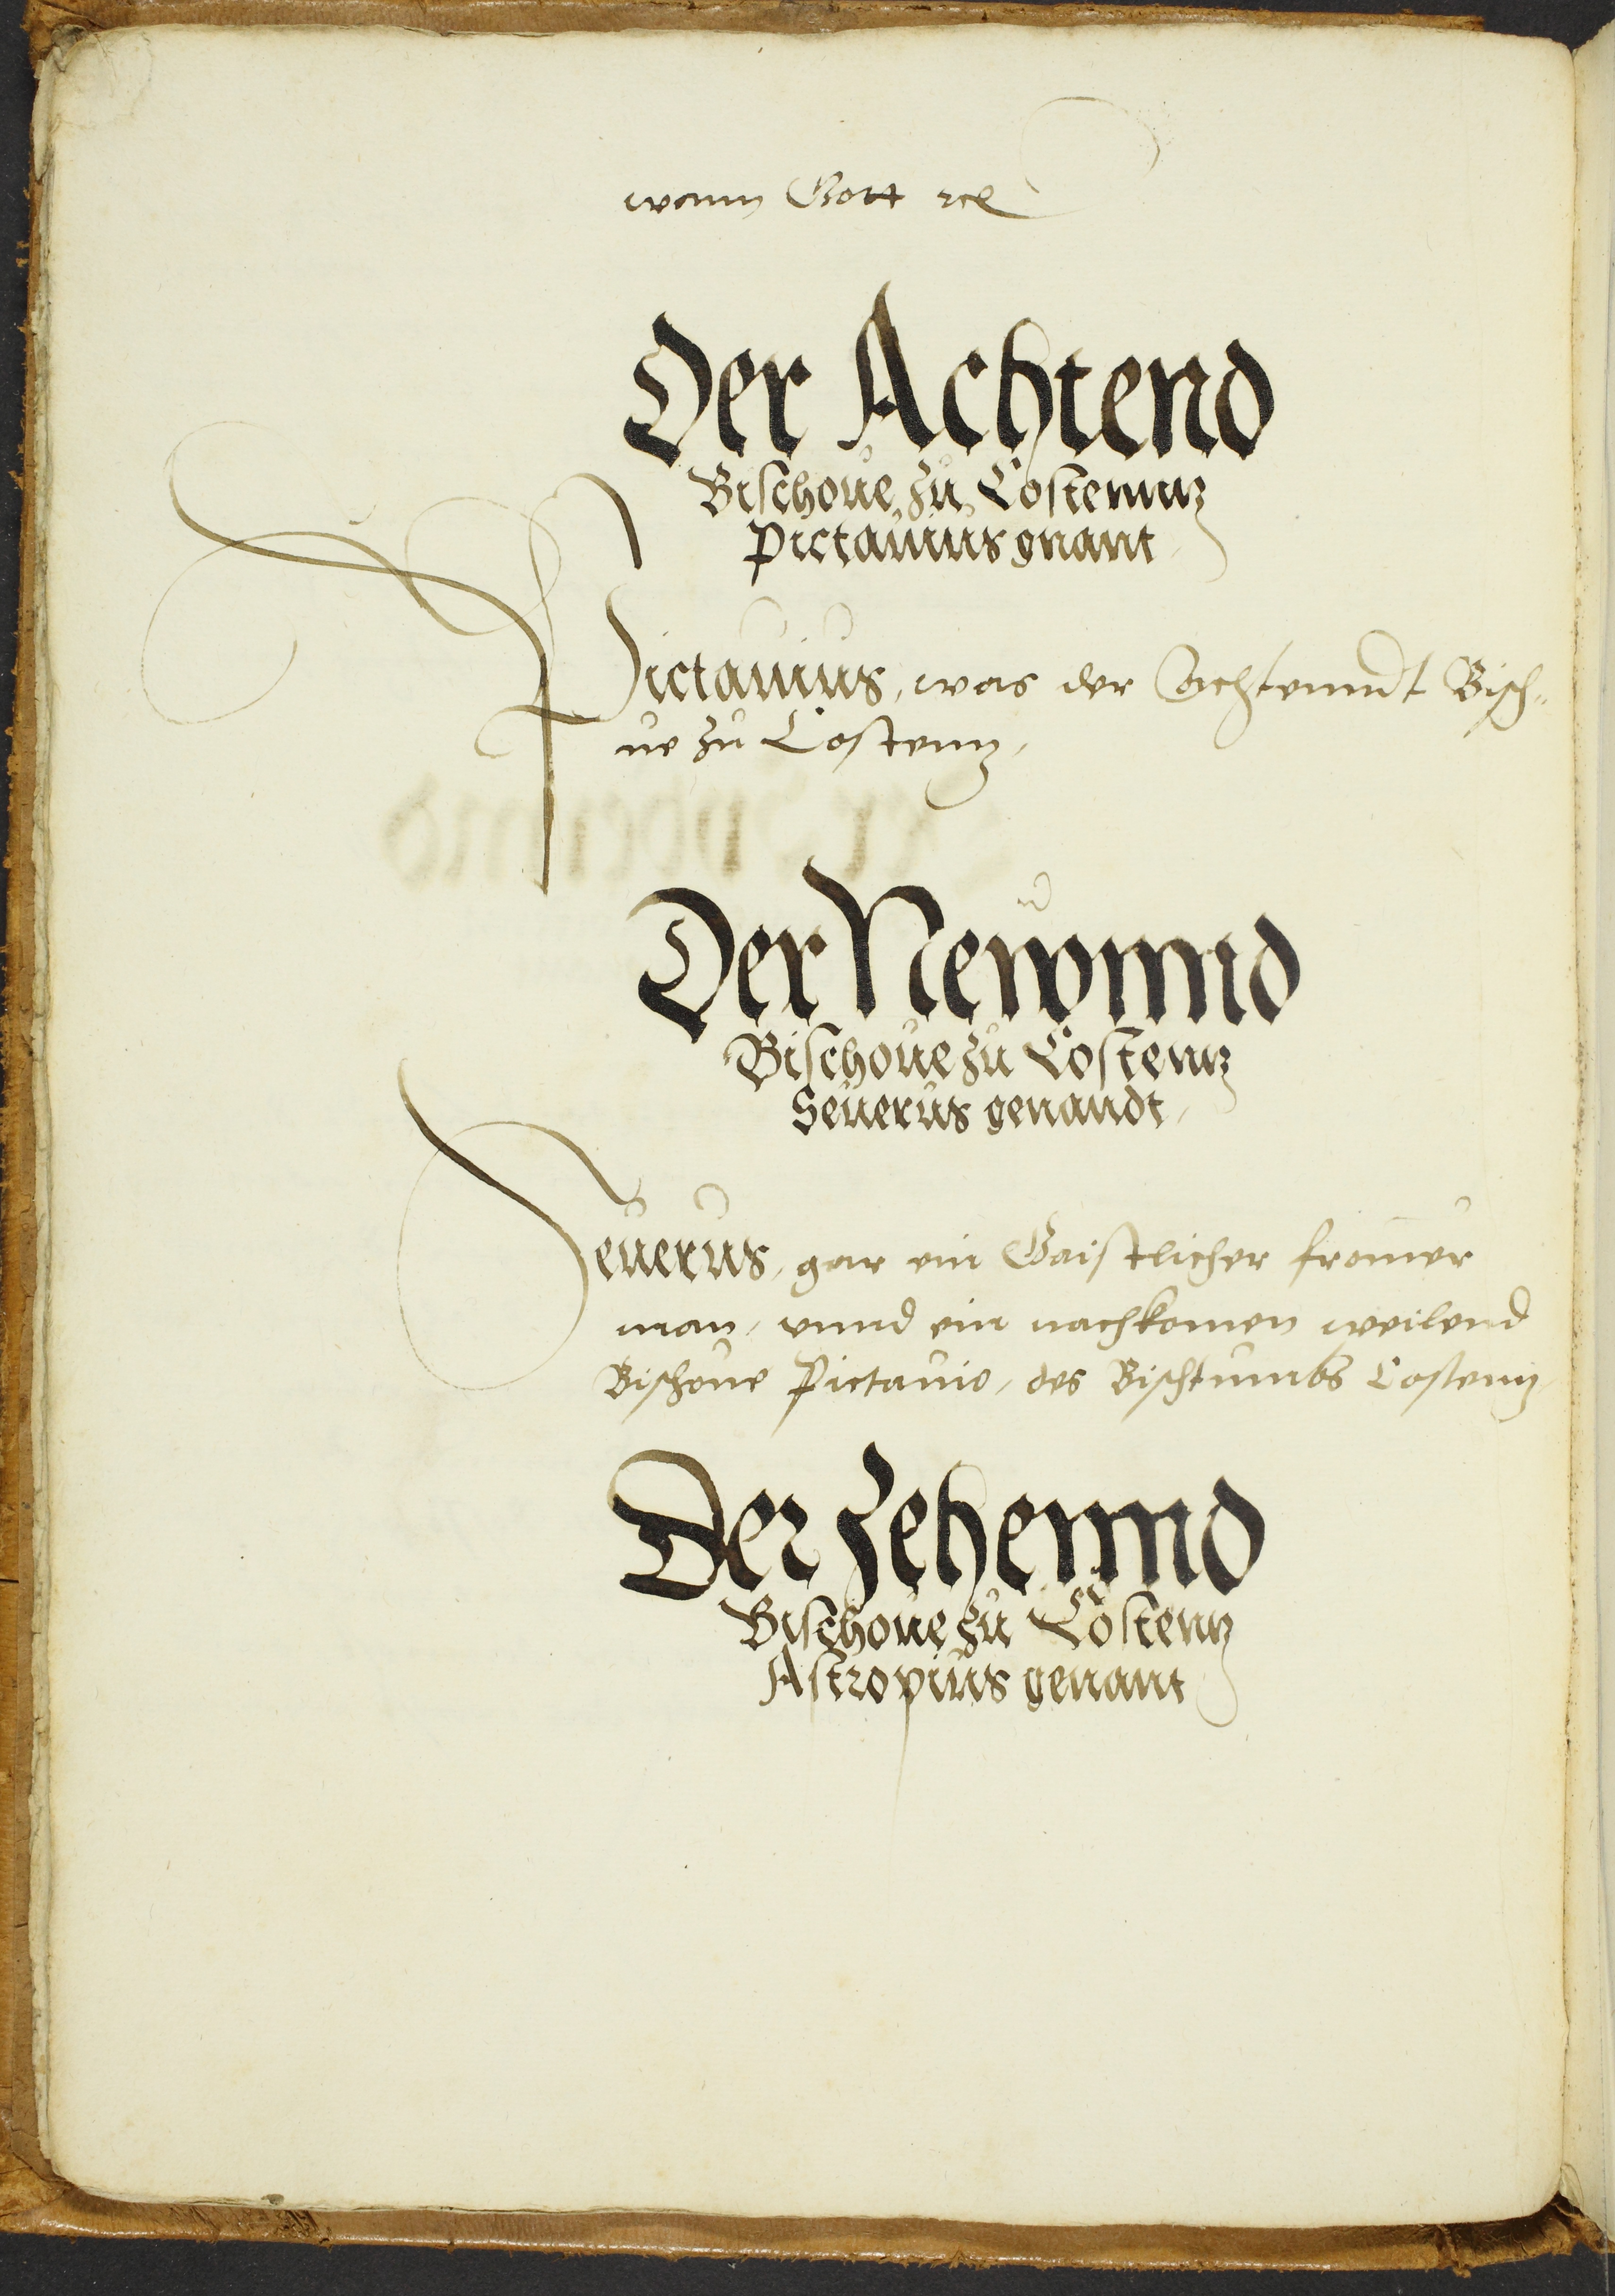 wann Gott rc
Der Achtend
Bischoue zu Costenntz
Pictauius gnant
Pictauius, was der Achtenndt Bisch„
ue zu Costenntz,
Der Newnnd
Bischoue zu Costentz
Seuerus genandt,
Seuerus, gar ein Gaistlicher fromer
man, vnnd ein nachkomen weilend
Bischoue Pictauio, des Bischtumbs Costentz,
Der Zehennd
Bischoue zu Costentz
Astropius genant